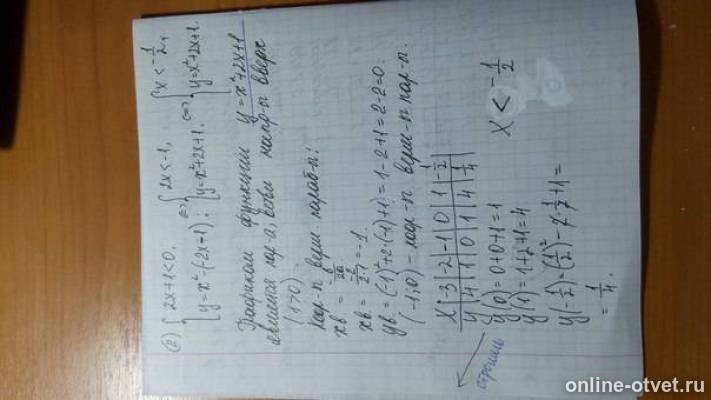 2) { 2x+1<0, <=> { 2x<-1, <=> { x<-1/2,
{ y=x²-(-2x+1); { y=x²+2x+1. { y=x²+2x+1.
Графиком функции y=x²+2x+1
является пар-а, ветви напр-н вверх
(1>0)
Коор-н верш параб-н:
xв = -в/2a
xв = -2/2·1 = -1.
yв=(-1)²+2·(-1)+1=1-2+1=2-2=0.
(-1;0) - коор-н верш-н пар-н.
x | -3 | -2 | -1 | 0 | 1 | -1/2
y | 4 | 1 | 0 | 1 | 4 | 1/4
y(0)=0+0+1=1
y(1)=1+2+1=4
y(-1/2)=(1/2)²-2·1/2+1=
= 1/4.
строишь
x < -1/2
online-otvet.ru